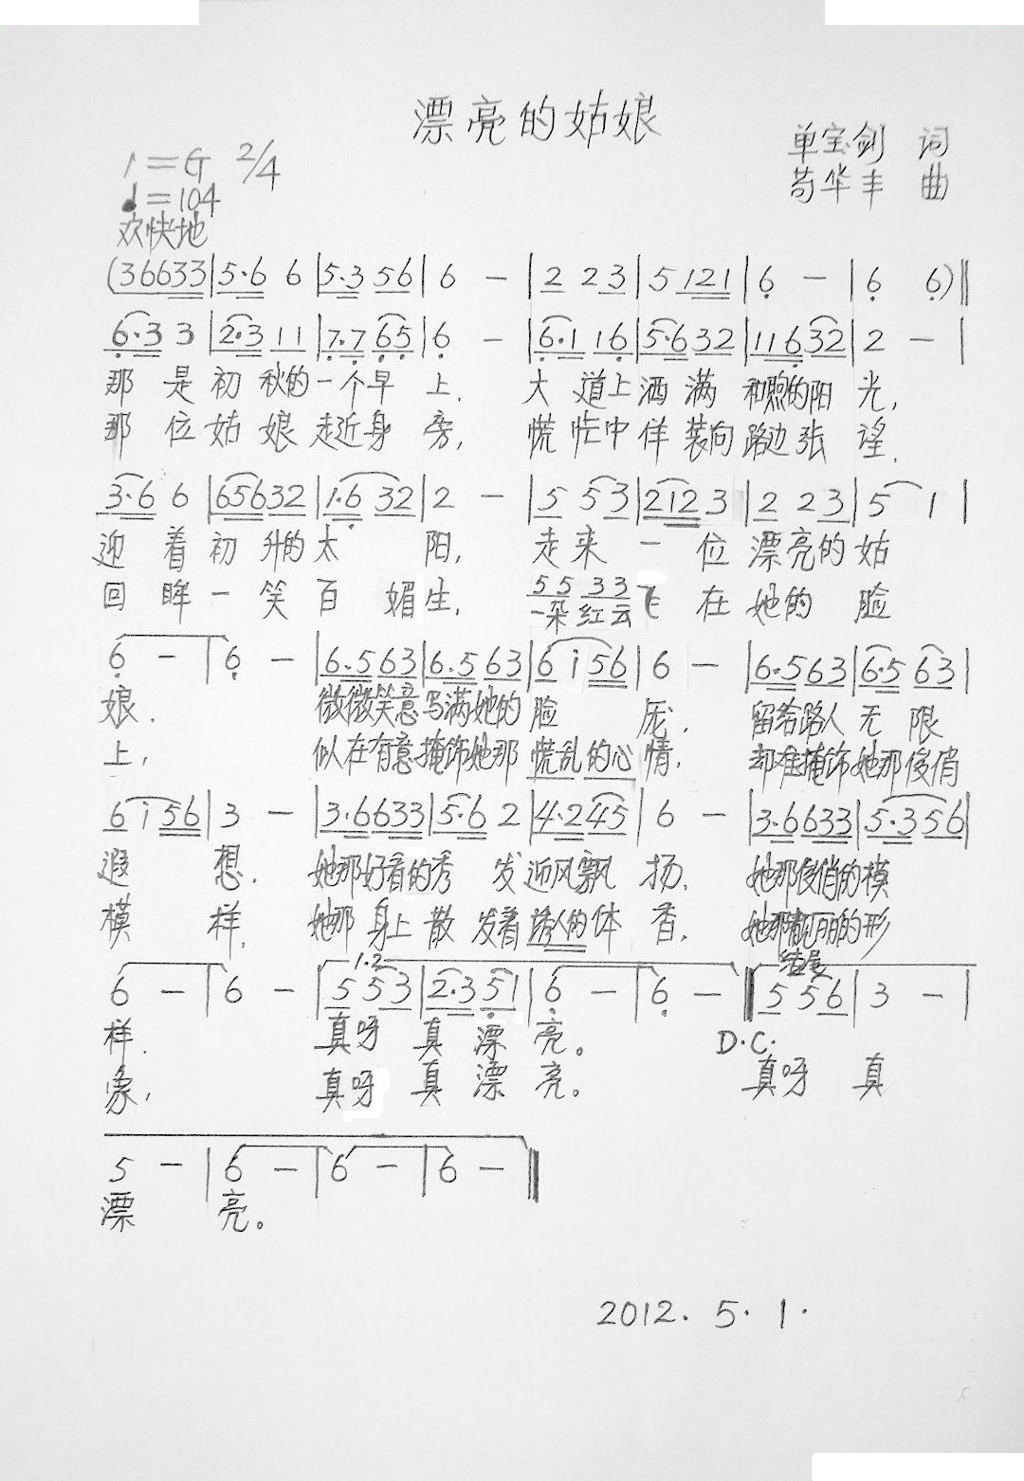 漂亮的姑娘
1=G 2/4
单宝剑 词
♩=104
苟华丰 曲
欢快地
(36633|5·6 6|5·3 56|6 －|2 23|5 121|6 －|6 6)‖
6·3 3|2·3 11|7·7 65|6 －|6·1 16|5·6 32|11632|2 －|
那是初秋的一个早上. 大道上洒满和煦的阳光,
那位姑娘走近身旁, 慌忙中佯装向路边张谣.
3·6 6|65632|1·6 32|2 －|5 53|212 3|2 23|5 1|
迎着初升的太阳, 走来一位漂亮的姑
5 5 3 3
回眸一笑百媚生, 一朵红云飞在她的脸
6 －|6 －|6·5 63|6·5 63|6 i 56|6 －|6·5 63|6·5 63|
娘. 微微笑意写满她的脸庞. 留给路人无限
上, 似在有意掩饰她那慌乱的心情, 却难掩饰她那俊俏
6 i 56|3 －|3·6633|5·6 2|4·2 45|6 －|3·6633|5·3 56|
遐想. 她那好看的秀发迎风飘扬. 她那俊俏的模
模样, 她那身上散发着诱人的体香. 她那靓丽的形
1.2 结尾
6 －|6 －|5 53|2·3 51|6 －|6 －‖5 56|3 －|
样. 真呀真漂亮。 D.C.
象, 真呀真漂亮。 真呀真
5 －|6 －|6 －|6 －‖
漂亮。
2012. 5. 1.